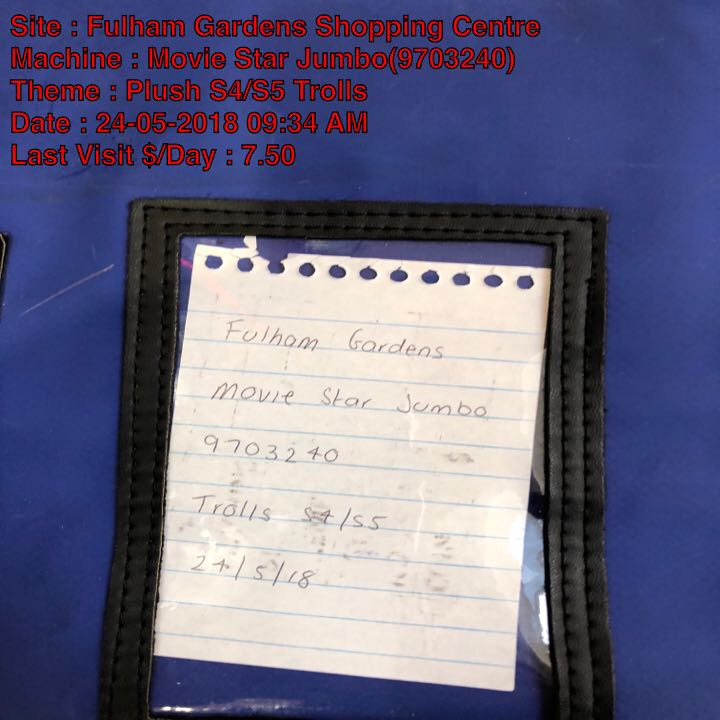 Site : Fulham Gardens Shopping Centre
Machine : Movie Star Jumbo(9703240)
Theme : Plush S4/S5 Trolls
Date : 24-05-2018 09:34 AM
Last Visit $/Day : 7.50
Fulham Gardens
Movie Star Jumbo
9703240
Trolls S4/S5
24/5/18